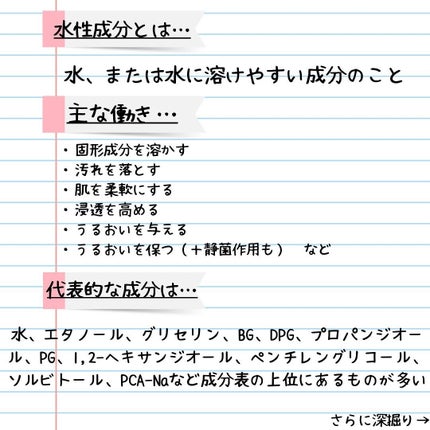 水性成分とは…
水、または水に溶けやすい成分のこと
主な働き…
・固形成分を溶かす
・汚れを落とす
・肌を柔軟にする
・浸透を高める
・うるおいを与える
・うるおいを保つ（＋静菌作用も） など
代表的な成分は…
水、エタノール、グリセリン、BG、DPG、プロパンジオー
ル、PG、1,2-ヘキサンジオール、ペンチレングリコール、
ソルビトール、PCA-Naなど成分表の上位にあるものが多い
さらに深掘り→